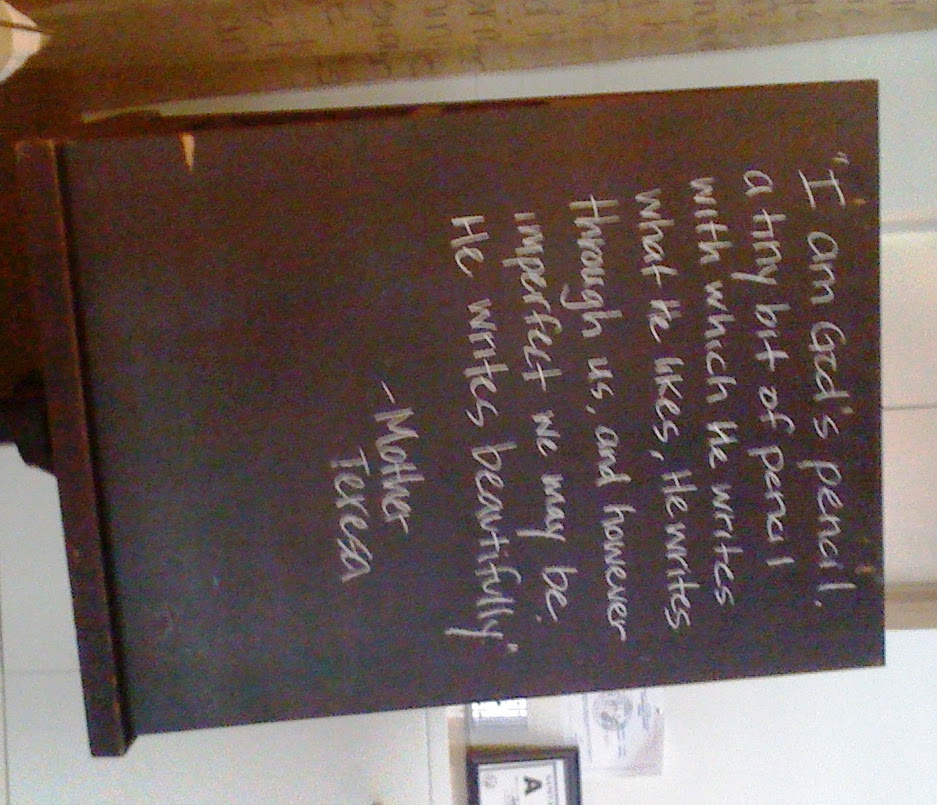 "I am God's pencil.
a tiny bit of pencil
with which He writes
what He likes, He writes
through us, and however
imperfect we may be.
He writes beautifully"
-Mother
Teresa
A